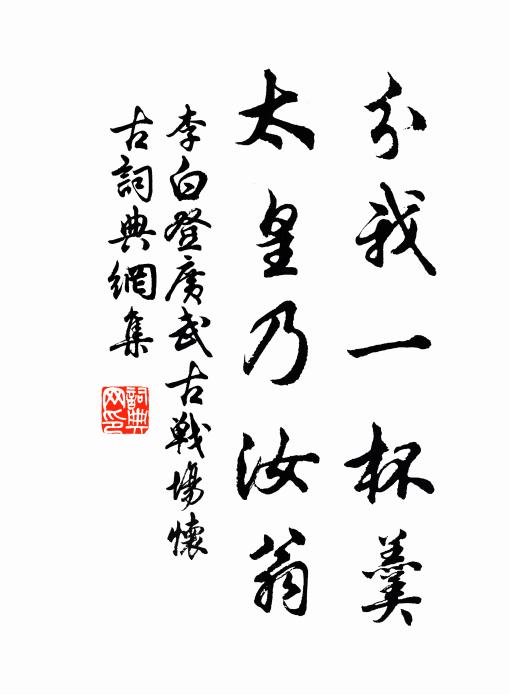 分我一杯羹
太皇乃汝翁
李白登廣武古戰場懷
古詞典網集
詞典
网印